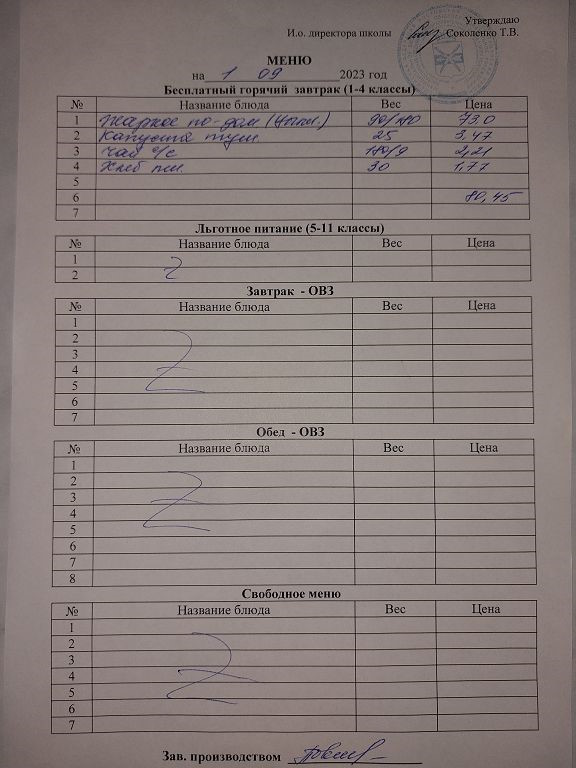 Утверждаю
И.о. директора школы Соколенко Т.В.
МЕНЮ
на 1 09 2023 год
Бесплатный горячий завтрак (1-4 классы)
№ Название блюда Вес Цена
1 Жаркое по-дом (цыпл.) 90/180 73.0
2 Капуста туш. 25 3,47
3 Чай с/с 180/9 2,21
4 Хлеб пш. 30 1,77
5
6 80,45
7
Льготное питание (5-11 классы)
№ Название блюда Вес Цена
1
2
Завтрак - ОВЗ
№ Название блюда Вес Цена
1
2
3
4
5
6
7
Обед - ОВЗ
№ Название блюда Вес Цена
1
2
3
4
5
6
7
8
Свободное меню
№ Название блюда Вес Цена
1
2
3
4
5
6
7
Зав. производством